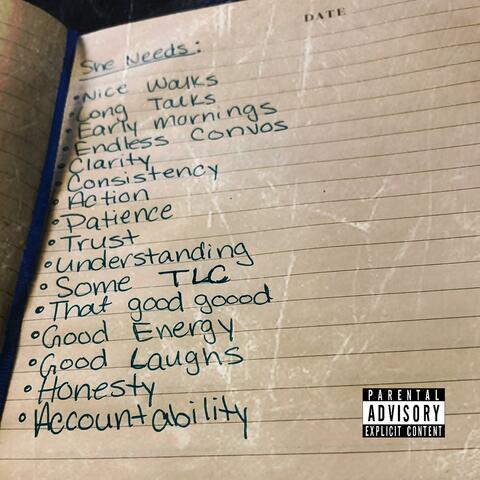 DATE
She Needs:
•Nice Walks
•Long Talks
•Early mornings
•Endless convos
•Clarity
•Consistency
•Action
•Patience
•Trust
•Understanding
•Some TLC
•That good goood
•Good Energy
•Good Laughs
•Honesty
•Accountability
PARENTAL
ADVISORY
EXPLICIT CONTENT